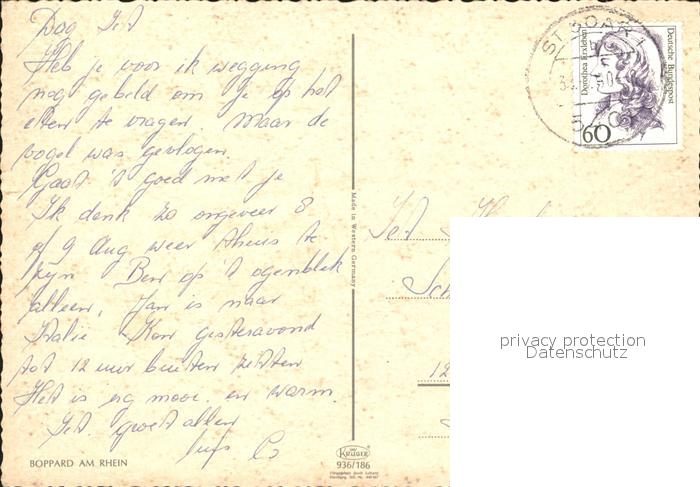 Dag Jet
Heb je voor ik wegging
nog gebeld om je op het
eten te vragen. Maar de
vogel was gevlogen.
Gaat 't goed met je
Ik denk zo ongeveer 8
of 9 Aug weer thuis te
zijn Ben op 't ogenblik
alleen, Jan is naar
Italie Kon gisteravond
tot 12 uur buiten zitten
Het is erg mooi en warm.
Jet groet allen
liefs
BOPPARD AM RHEIN
Made in Western Germany
KRÜGER
936/186
ST. GOAR 1
Deutsche Bundespost
Dorothea Erxleben
60
Jet
Sch
12
privacy protection
Datenschutz